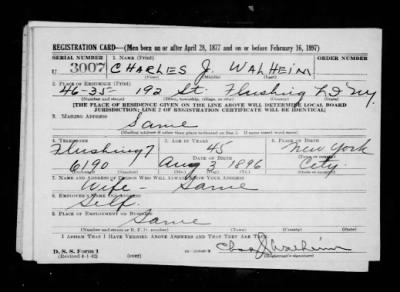 REGISTRATION CARD—(Men born on or after April 28, 1877 and on or before February 16, 1897)
SERIAL NUMBER
1. NAME (Print)
U 3007 CHARLES J. WALHEIM
(First) (Middle) (Last)
2. PLACE OF RESIDENCE (Print)
46-35- 192 St. Flushing L I NY.
(Number and street) (Town, township, village, or city) (County) (State)
[THE PLACE OF RESIDENCE GIVEN ON THE LINE ABOVE WILL DETERMINE LOCAL BOARD
JURISDICTION; LINE 2 OF REGISTRATION CERTIFICATE WILL BE IDENTICAL]
3. MAILING ADDRESS
Same
[Mailing address if other than place indicated on line 2. If same insert word same]
4. TELEPHONE
5. AGE IN YEARS
6. PLACE OF BIRTH
Flushing 7
45
New York
DATE OF BIRTH
6190
Aug 3 1896
City
7. NAME AND ADDRESS OF PERSON WHO WILL ALWAYS KNOW YOUR ADDRESS
Wife - Same
8. EMPLOYER'S NAME AND ADDRESS
Self.
9. PLACE OF EMPLOYMENT OR BUSINESS
Same
(Number and street or R. F. D. number) (Town) (County) (State)
I AFFIRM THAT I HAVE VERIFIED ABOVE ANSWERS AND THAT THEY ARE TRUE.
D. S. S. Form 1
(Revised 4-1-42)
Chas J Walheim
(Registrant's signature)